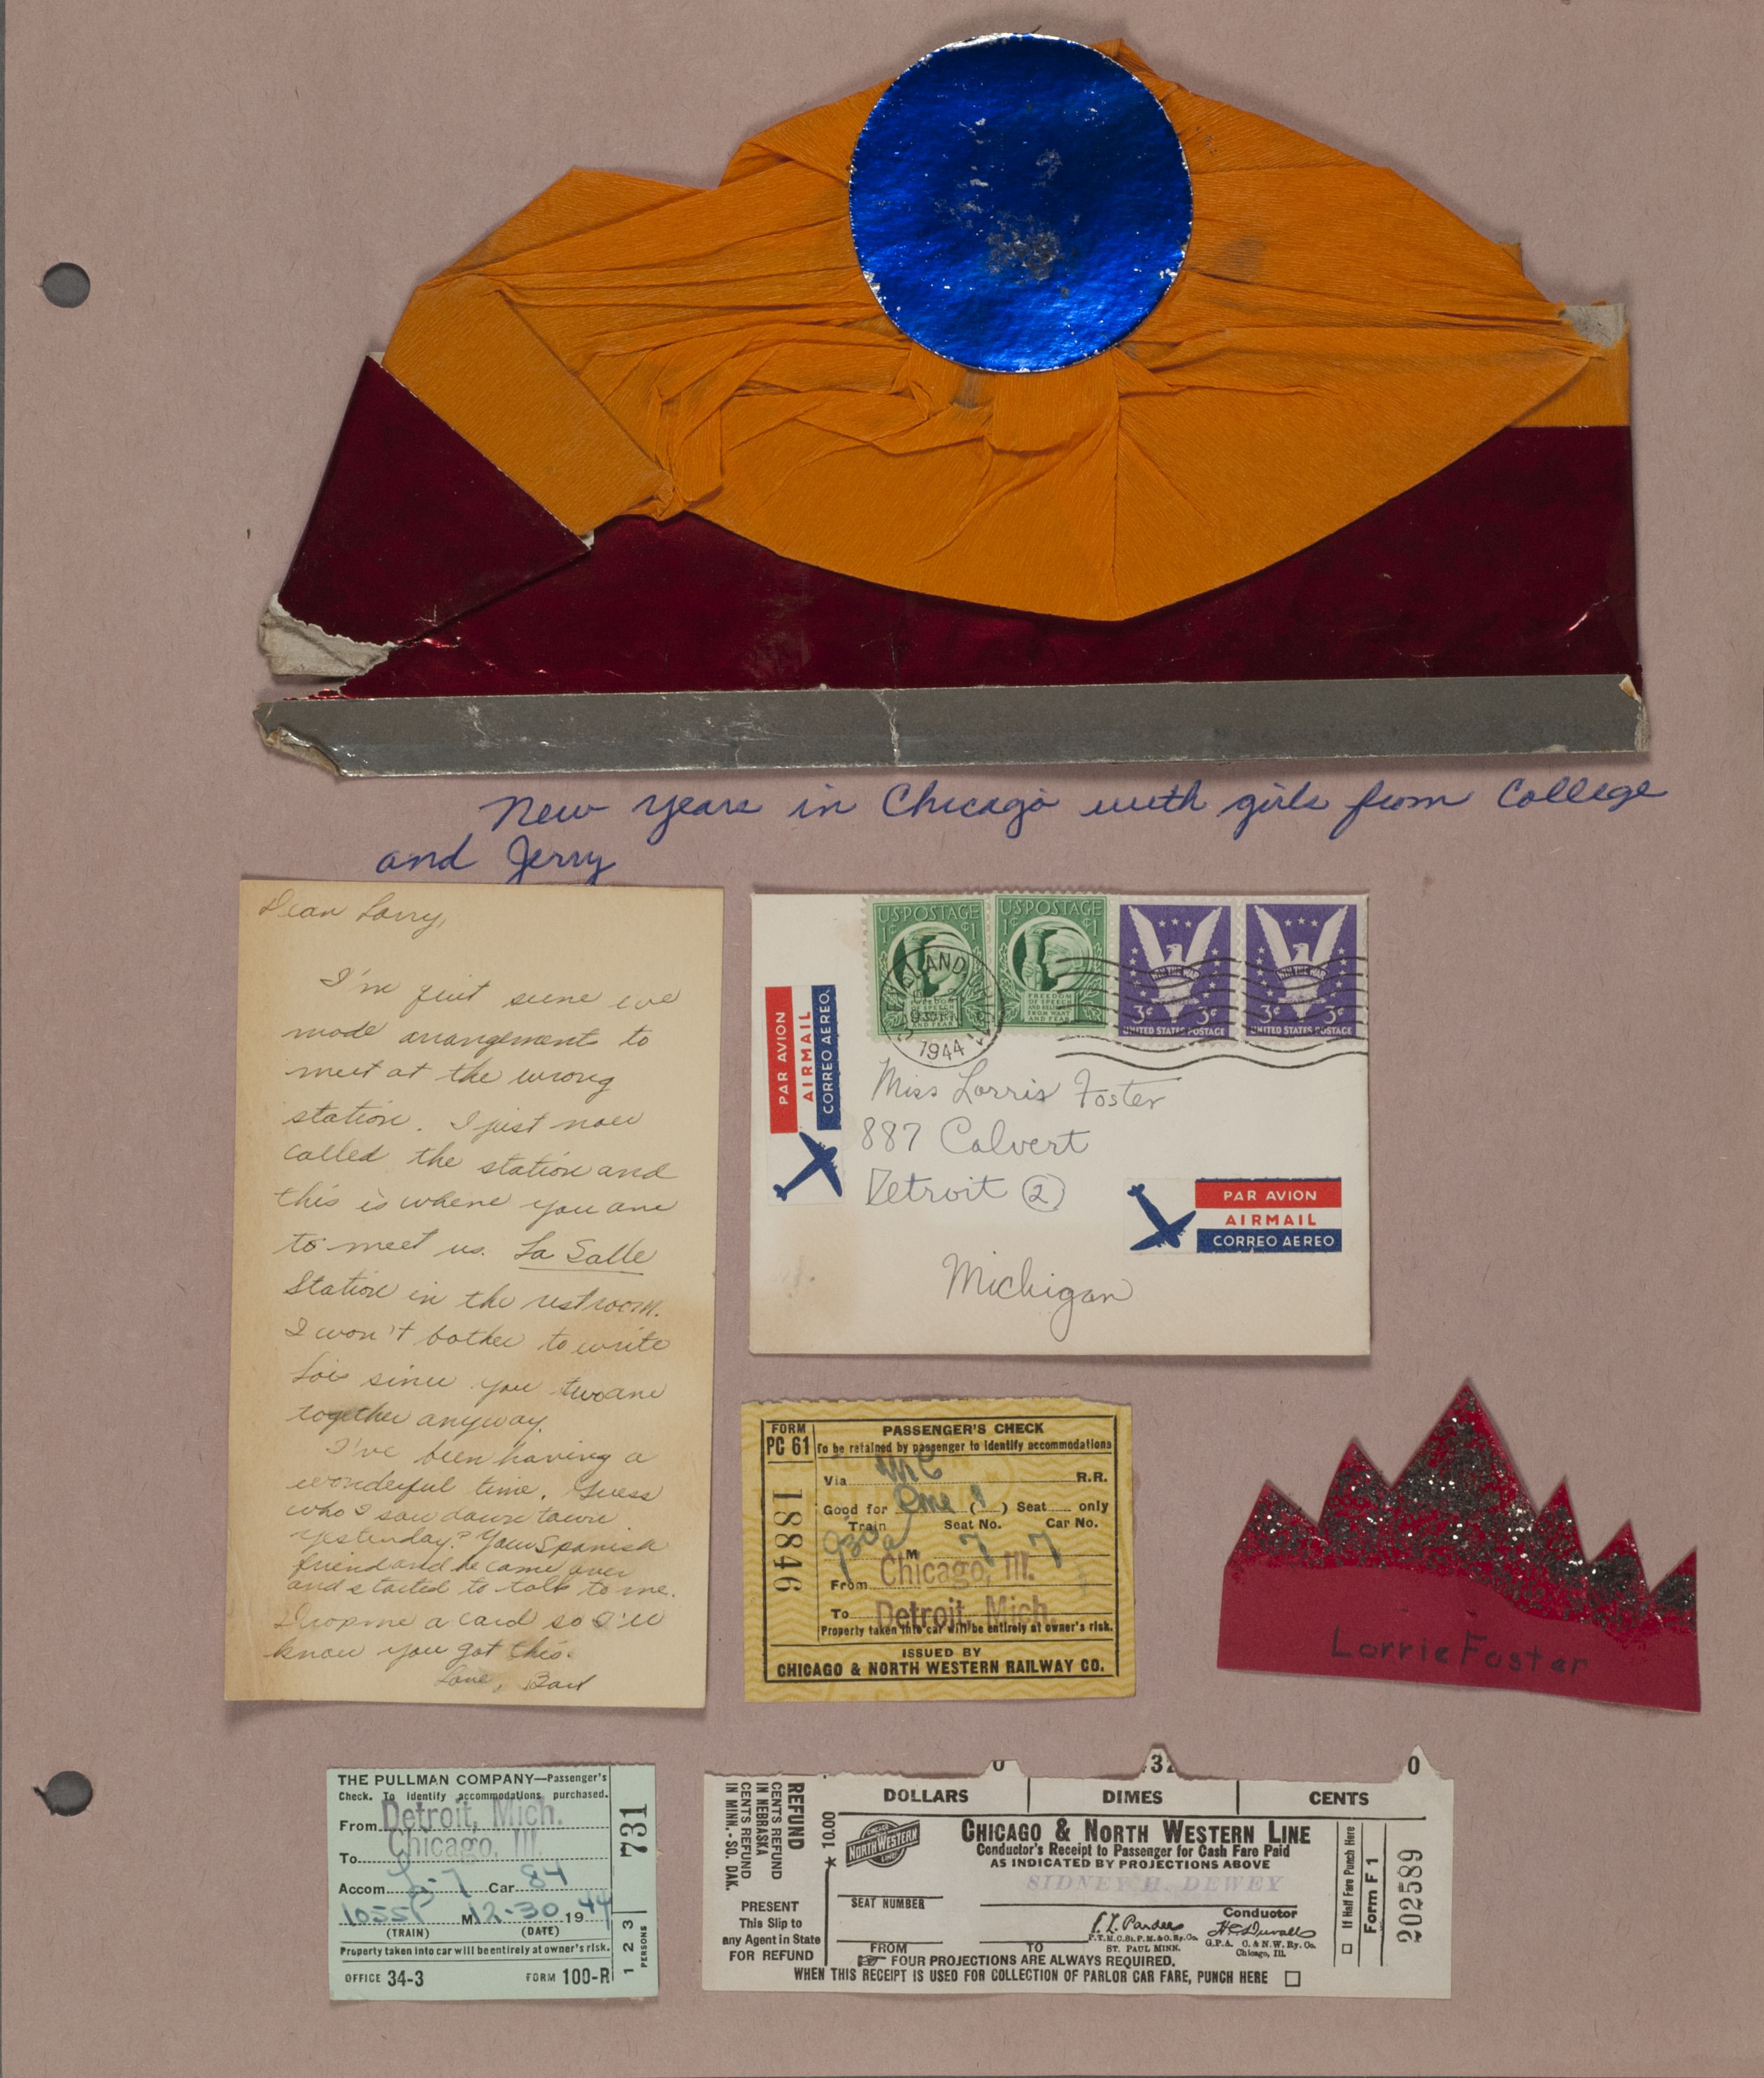 New Years in Chicago with girls from College
and Jerry
Dear Lorry,
I'm quit sure we
made arrangements to
meet at the wrong
station. I just now
called the station and
this is where you are
to meet us. La Salle
Station in the restroom.
I won't bother to write
Lois since you two are
together anyway.
I've been having a
wonderful time. Guess
who I saw down town
yesterday? Your Spanish
friend and he came over
and started to talk to me.
Drop me a card so I'll
know you got this.
Love, Barb
U.S. POSTAGE
1¢ ¢1
U.S. POSTAGE
1¢ ¢1
FREEDOM
OF SPEECH
AND RELIGION
FROM WANT
AND FEAR
WIN THE WAR
3¢ 3¢
UNITED STATES POSTAGE
WIN THE WAR
3¢ 3¢
UNITED STATES POSTAGE
1944
PAR AVION
AIRMAIL
CORREO AEREO
Miss Lorris Foster
887 Calvert
Detroit 2
Michigan
PAR AVION
AIRMAIL
CORREO AEREO
FORM
PC 61
18846
PASSENGER'S CHECK
To be retained by passenger to identify accommodations
Via MC R.R.
Good for One (1) Seat only
Train Seat No. Car No.
930a M 7 7
From Chicago, Ill.
To Detroit, Mich.
Property taken into car will be entirely at owner's risk.
ISSUED BY
CHICAGO & NORTH WESTERN RAILWAY CO.
Lorrie Foster
THE PULLMAN COMPANY—Passenger's
Check. To identify accommodations purchased.
From Detroit, Mich.
To Chicago, Ill.
Accom. L-7 Car 84
1055P M 12-30 1944
(TRAIN) (DATE)
Property taken into car will be entirely at owner's risk.
OFFICE 34-3 FORM 100-R
731
1 2 3
PERSONS
0 32 0
DOLLARS DIMES CENTS
REFUND
CENTS REFUND
IN NEBRASKA
CENTS REFUND
IN MINN.-SO. DAK.
PRESENT
This Slip to
any Agent in State
FOR REFUND
★ 10010
CHICAGO
NORTH WESTERN
LINE
CHICAGO & NORTH WESTERN LINE
Conductor's Receipt to Passenger for Cash Fare Paid
AS INDICATED BY PROJECTIONS ABOVE
SIDNEY H. DEWEY
SEAT NUMBER
Conductor
P.T.M.C.St.P.M.&O.Ry.Co.
ST. PAUL MINN.
G.P.A. C. & N.W. Ry. Co.
Chicago, Ill.
FROM TO
FOUR PROJECTIONS ARE ALWAYS REQUIRED.
WHEN THIS RECEIPT IS USED FOR COLLECTION OF PARLOR CAR FARE, PUNCH HERE
If Half Fare Punch Here
Form F 1
202589